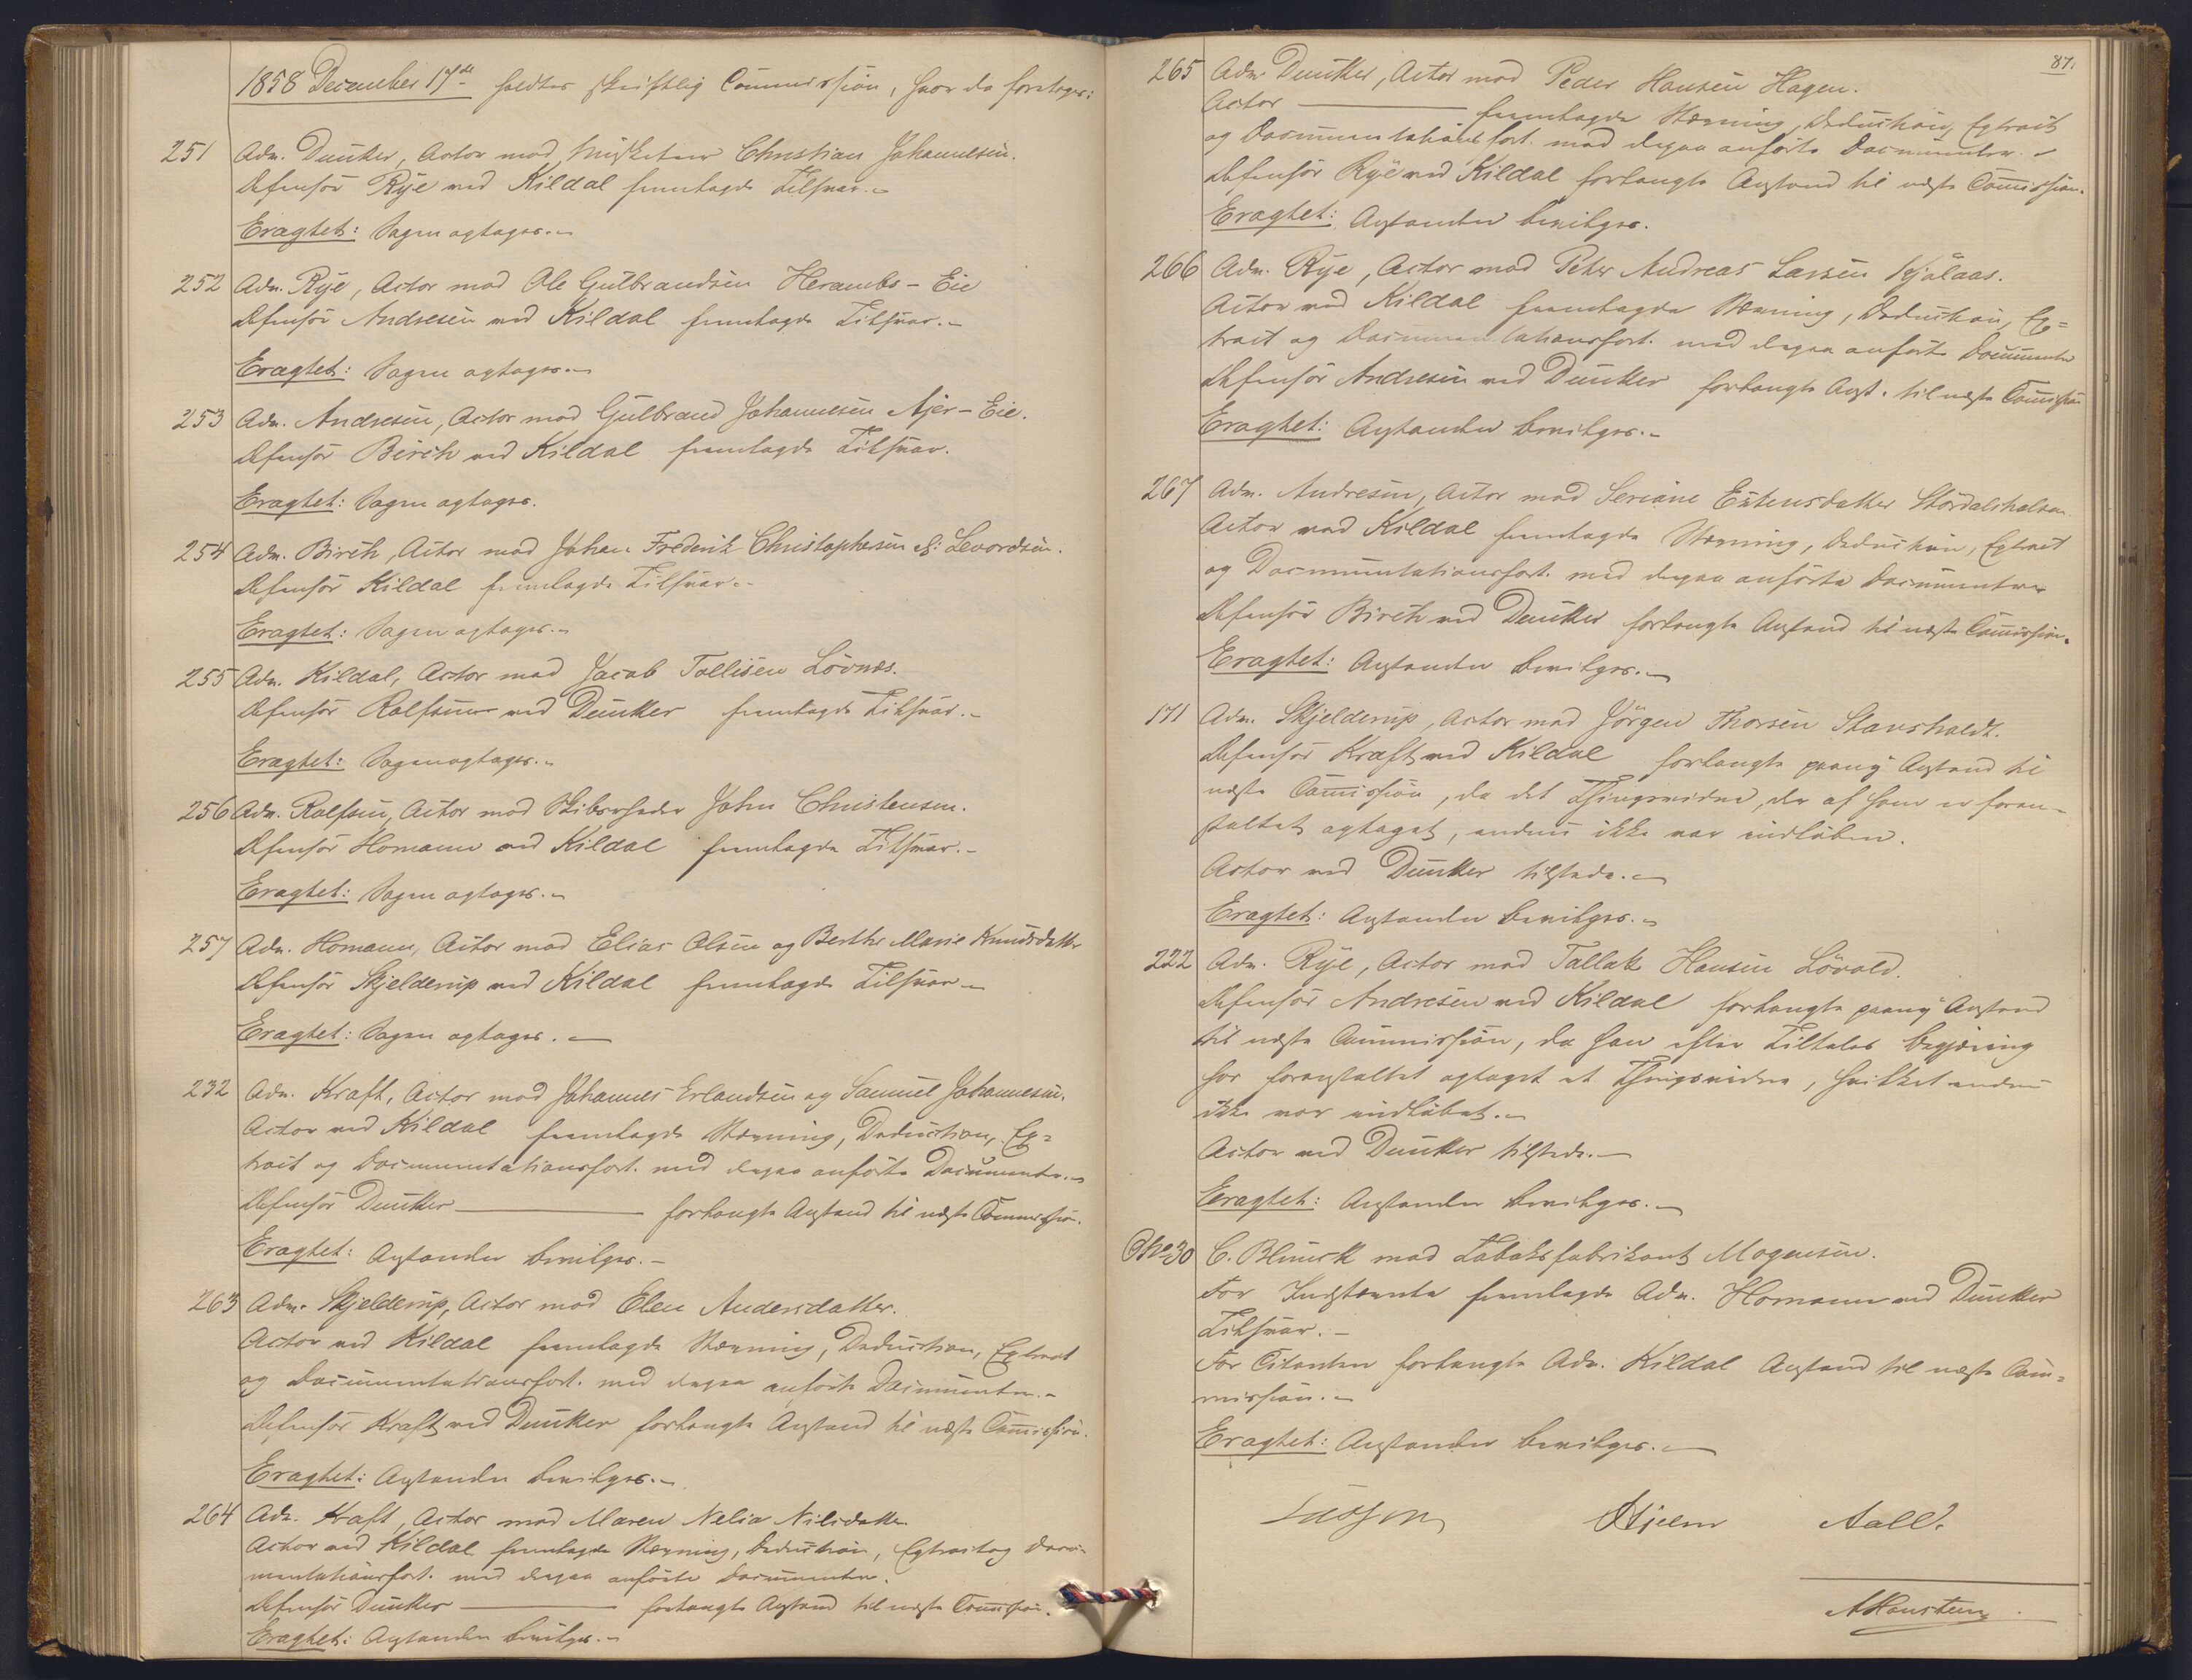 1858 December 17de holdtes skriftlig Commission, hvor da foretoges:
251 Adv. Dunker, Actor mod Musketeer Christian Johannesen.
Defensor Rÿe ved Kildal fremlagde Tilsvar.-
Eragtet: Sagen optages.-
252 Adv. Rÿe, Actor mod Ole Gulbrandsen Herambs-Eie
Defensor Andresen ved Kildal fremlagde Tilsvar.-
Eragtet: Sagen optages.-
253 Adv. Andresen, Actor mod Gulbrand Johannesen Ajer-Eie.
Defensor Birch ved Kildal fremlagde Tilsvar.
Eragtet: Sagen optages.
254 Adv. Birch, Actor mod Johan Frederik Christophersen el: Levordsen.
Defensor Kildal fremlagde Tilsvar.-
Eragtet: Sagen optages.-
255 Adv. Kildal, Actor mod Jacob Tollisen Lövnes.
Defensor Rolfsen ved Dunker fremlagde Tilsvar.-
Eragtet: Sagen optages.-
256 Adv. Rolfsen, Actor mod Skibsrheder John Christensen.
Defensor Homann ved Kildal fremlagde Tilsvar.-
Eragtet: Sagen optages.-
257 Adv. Homann, Actor mod Elias Olsen og Berthe Marie Knudsdatter
Defensor Skjelderup ved Kildal fremlagde Tilsvar-
Eragtet: Sagen optages.-
232 Adv. Kraft, Actor mod Johannes Erlandsen og Samuel Johannesen.
Actor ved Kildal fremlagde Stævning, Deduction, Ex=
trait og Documentationsfort. med derpaa anförte Documenter.-
Defensor Dunker — forlangte Anstand til næste Commission.
Eragtet: Anstanden bevilges.-
263 Adv. Skjelderup, Actor mod Elen Andersdatter.
Actor ved Kildal fremlagde Stævning, Deduction, Extrait
og Documentationsfort. med derpaa anförte Documenter.-
Defensor Kraft ved Dunker forlangte Anstand til næste Commission.
Eragtet: Anstanden bevilges.-
264 Adv. Kraft, Actor mod Maren Nelia Nilsdatter
Actor ved Kildal fremlagde Stævning, Deduction, Extrait og Docu-
mentationsfort. med derpaa anförte Documenter.
Defensor Dunker — forlangte Anstand til næste Commission.
Eragtet: Anstanden bevilges.-
87.
265 Adv. Dunker, Actor mod Peder Hansen Hagen.
Actor — fremlagde Stævning, Deduction, Extrait
og Documentationsfort. med derpaa anförte Documenter.-
Defensor Rÿe ved Kildal forlangte Anstand til næste Commission.
Eragtet: Anstanden bevilges.
266 Adv. Rÿe, Actor mod Peter Andreas Larsen Kjölaas.
Actor ved Kildal fremlagde Stævning, Deduction, Ex=
trait og Documentationsfort. med derpaa anförte Documenter
Defensor Andresen ved Dunker forlangte Anst. til næste Commission
Eragtet: Anstanden bevilges.-
267 Adv. Andresen, Actor mod Seriane Estensdatter Stördalshalsen.
Actor ved Kildal fremlagde Stævning, Deduction, Extrait
og Documentationsfort. med derpaa anförte Documenter
Defensor Birch ved Dunker forlangte Anstand til næste Commission.
Eragtet: Anstanden bevilges.-
171 Adv. Skjelderup, Actor mod Jörgen Thorsen Stavsholdt.
Defensor Kraft ved Kildal forlangte paany Anstand til
næste Commission, da det Thingsvidne, der af ham er foran-
staltet optaget, endnu ikke var indlöben.
Actor ved Dunker tilstede.-
Eragtet: Anstanden bevilges.-
222 Adv. Rÿe, Actor mod Tallak Hansen Lövold.
Defensor Andresen ved Kildal forlangte paany Anstand
til næste Commission, da han efter Tiltaltes Begjæring
har foranstaltet optaget et Thingsvidne, hvilket endnu
ikke var indlöbet.-
Actor ved Dunker tilstede.-
Eragtet: Anstanden bevilges.-
No 30 C. Blunck mod Tobaksfabrikant Mogensen.
For Indstævnte fremlagde Adv. Homann ved Dunker
Tilsvar.-
For Citanten forlangte Adv. Kildal Anstand til næste Com=
mission.-
Eragtet: Anstanden bevilges.-
Lasson Hjelm Aall.
AHansteen